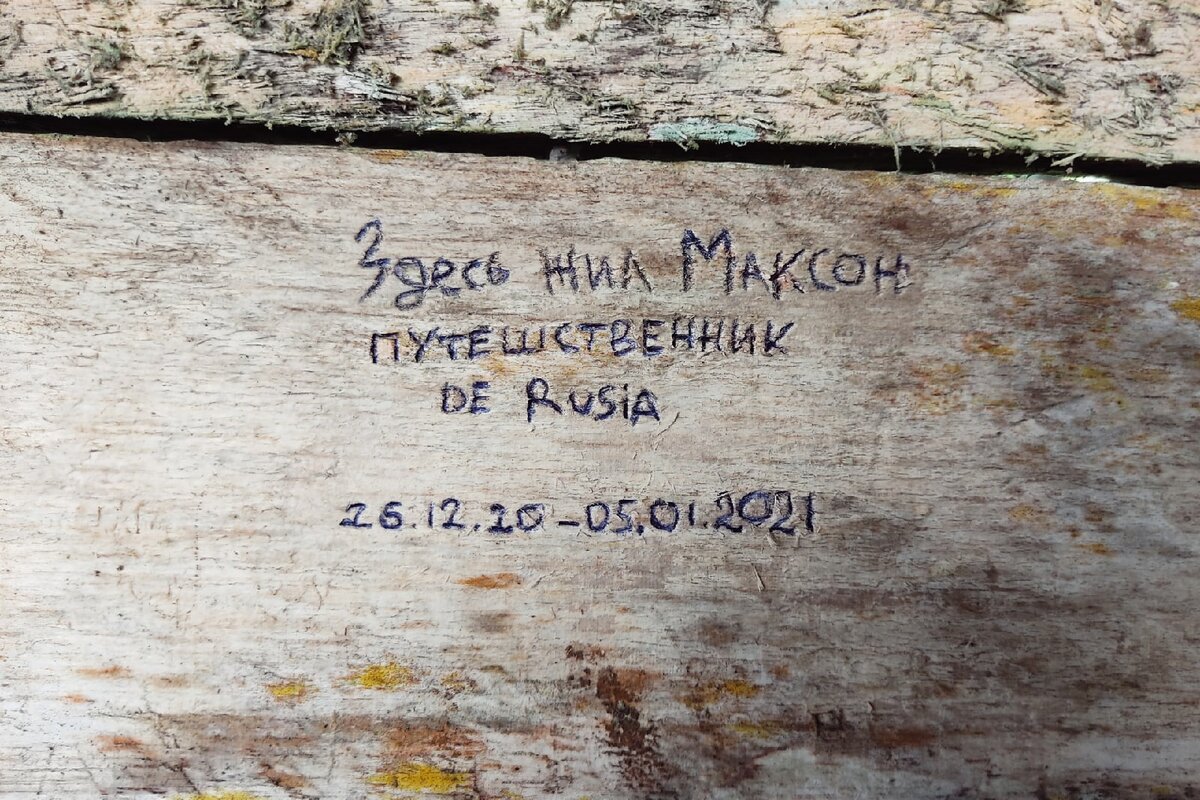 Здесь жил Максон
путешественник
DE RUSiA
26.12.20-05.01.2021